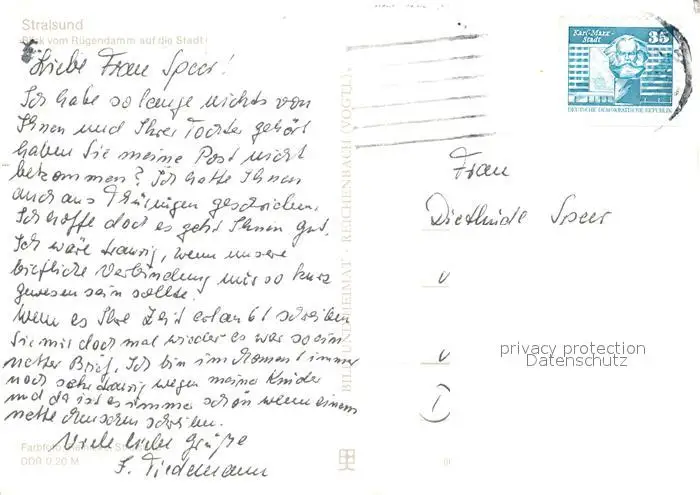 Stralsund
Blick vom Rügendamm auf die Stadt
Liebe Frau Speer!
Ich habe so lange nichts von
Ihnen und Ihrer Tochter gehört
haben Sie meine Post nicht
bekommen? Ich hatte Ihnen
auch aus Thüringen geschrieben.
Ich hoffe doch es geht Ihnen gut.
Ich wäre traurig, wenn unsere
briefliche Verbindung nur so kurz
gewesen sein sollte.
Wenn es Ihre Zeit erlaubt schreiben
Sie mir doch mal wieder es war so ein
netter Brief. Ich bin im Moment immer
noch sehr traurig wegen meine Kinder
und da ist es immer schön wenn einem
nette Menschen schreiben.
Viele liebe Grüße
F. Tiedemann
Farbfoto
DDR 0,20 M
BILD UND HEIMAT · REICHENBACH (VOGTL)
Karl-Marx-Stadt 35
DEUTSCHE DEMOKRATISCHE REPUBLIK
Frau
Diethilde Speer
privacy protection
Datenschutz